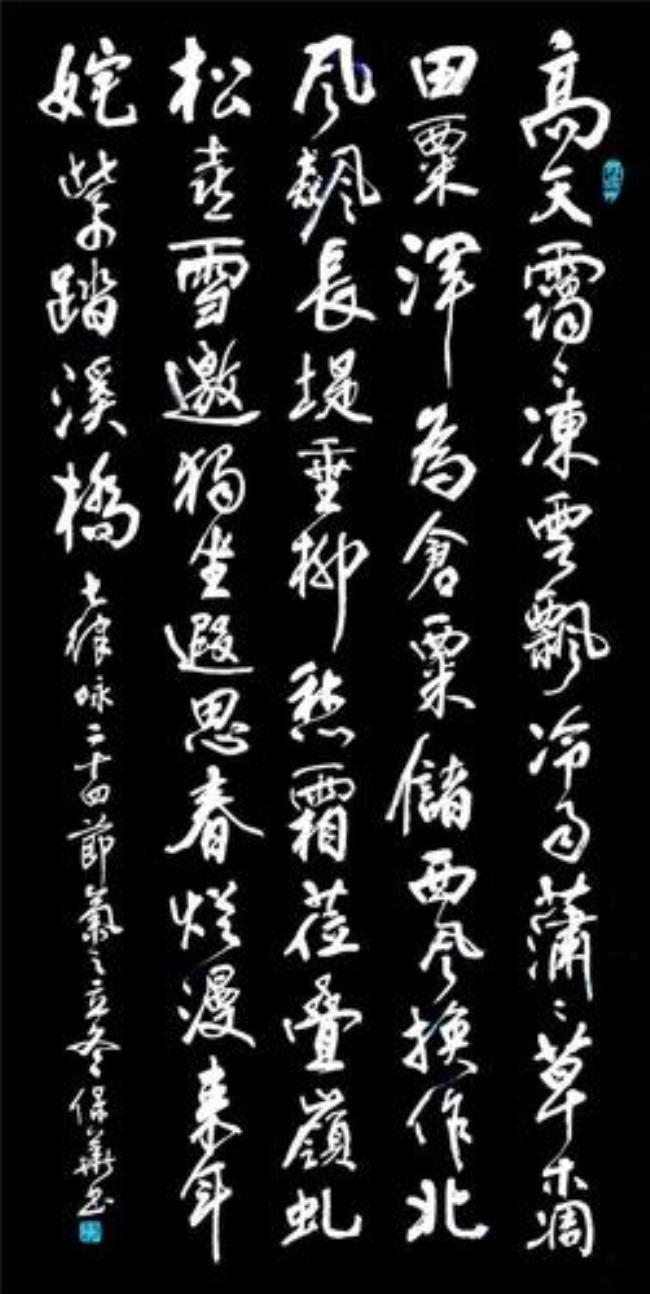 高天靄〻凍雲飄冷雨蕭〻草木凋
田粟渾為倉粟儲西風換作北
風飆長堤垂柳愁霜蒞疊嶺虬
松喜雪邀獨坐遐思春爛漫来年
姹紫踏溪橋 七律咏二十四節氣之立冬 保華書